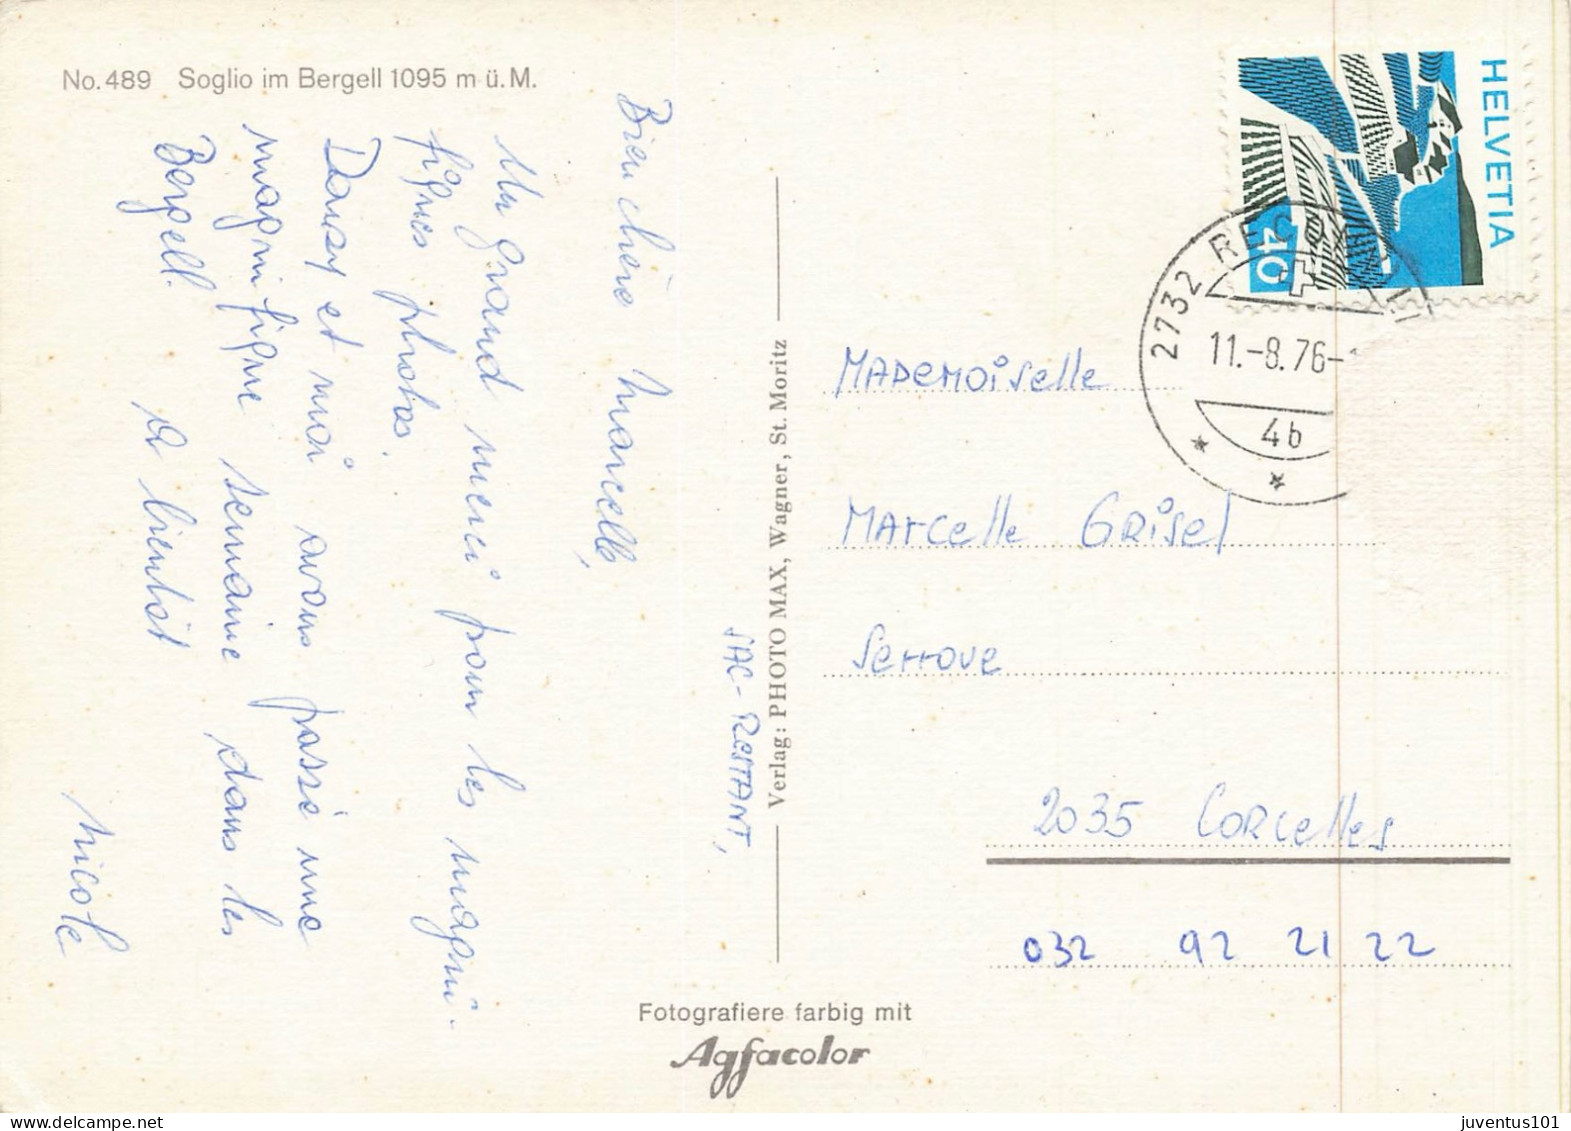 No. 489 Soglio im Bergell 1095 m ü. M.
Bien chère Marcelle,
Un grand merci pour les magni-
fiques photos.
Dansy et moi avons passé une
magnifique semaine dans les
Bergell. A bientôt
Nicole
SAC-RESTANT,
Verlag: PHOTO MAX, Wagner, St. Moritz
Fotografiere farbig mit
Agfacolor
HELVETIA
40
2732 RECONVILIER
11.-8.76-
4b
MADEMOISelle
MArcelle GRISel
Serroue
2035 CORCelles
032 92 21 22
www.delcampe.net
juventus101